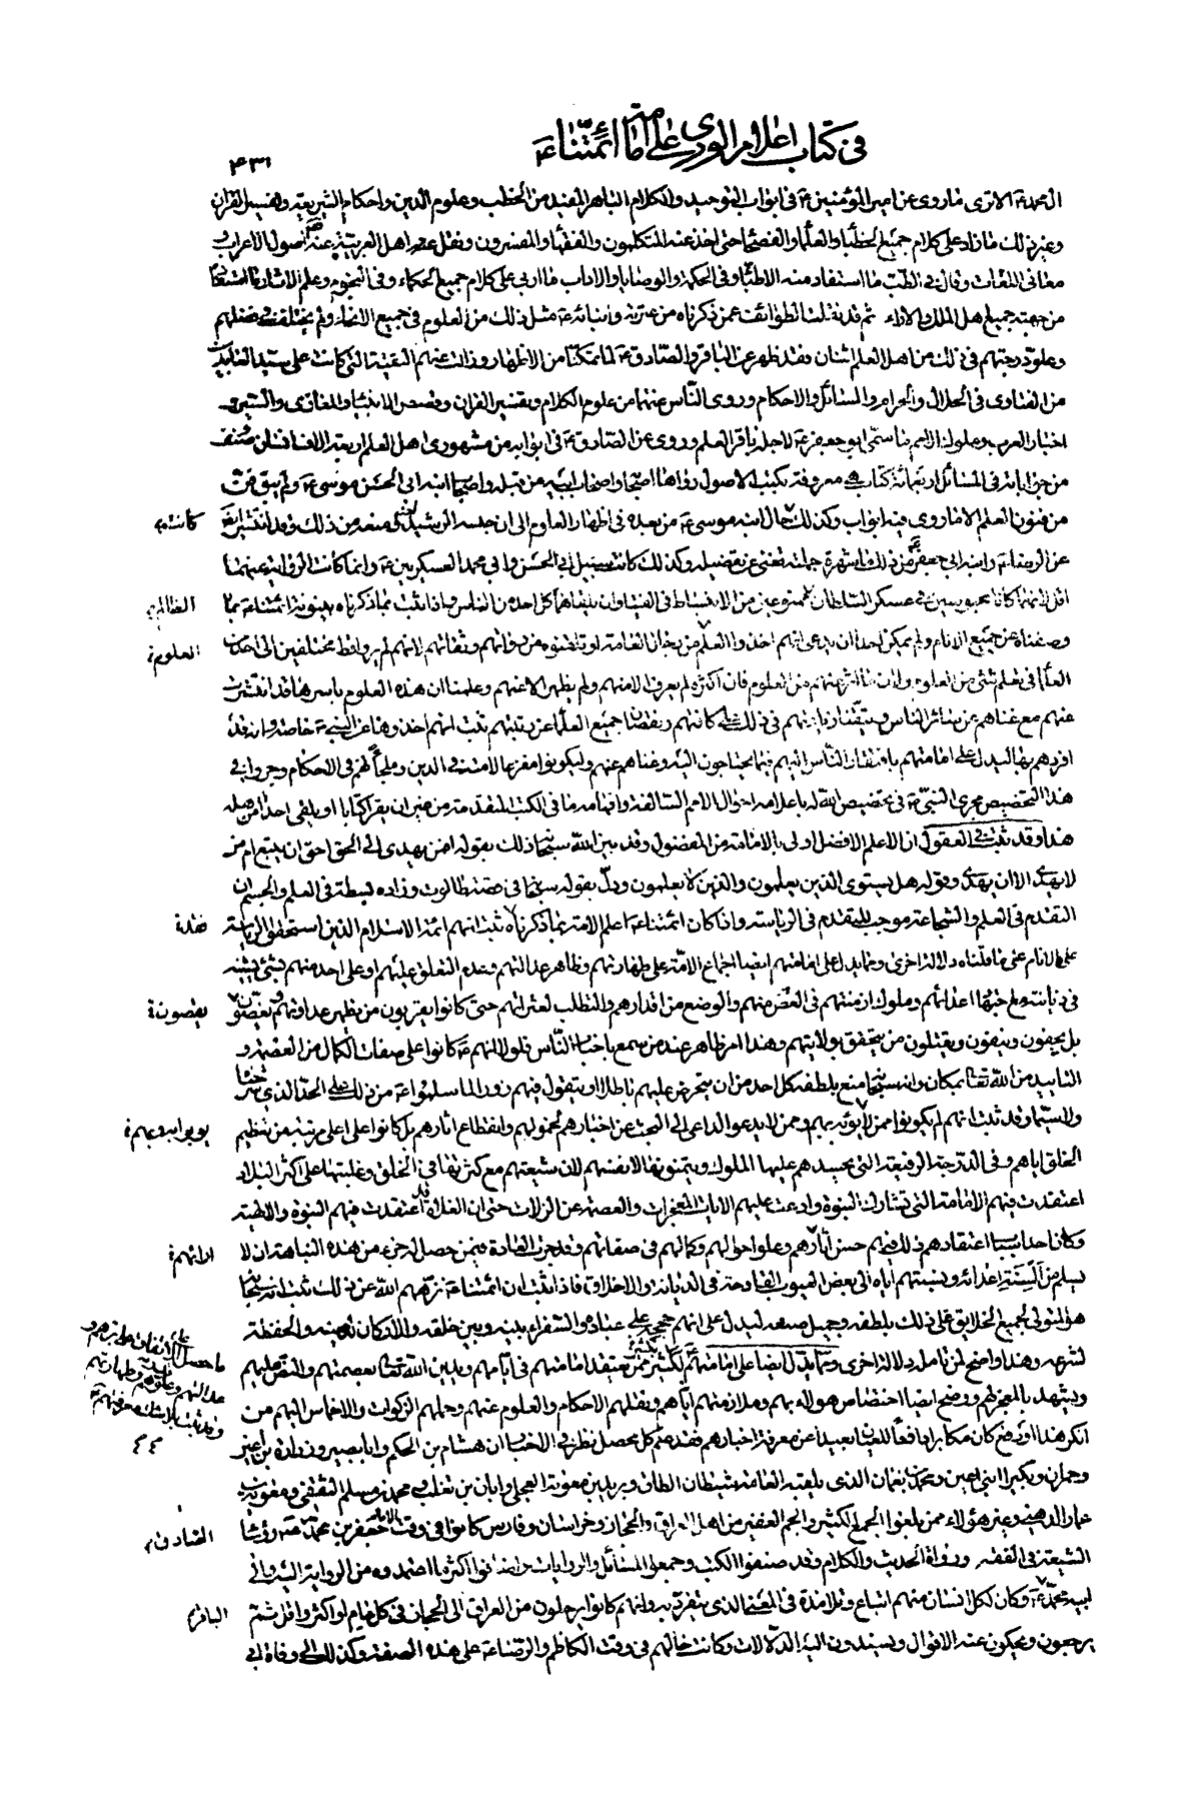 في كتاب اعلام الورى على امامة ائمتناء
٤٣١
الحمدة الا ترى ما روى عن امير المؤمنين ع في ابواب التوحيد والكلام الباهر المفيد من الخطب وعلوم الدين واحكام الشريعة وتفسير القران
وغير ذلك ما زاد على كلام جميع الخطباء والعلماء والفصحاء حتى اخذ عنه المتكلمون والفقهاء والمفسرون ونقل عنه اهل العربية عنه اصول الاعراب و
معاني اللغات وقال في الطب ما استفاد منه الاطباء وفي الحكمة والوصايا والاداب ما اربى على كلام جميع الحكماء وفي النجوم وعلم الاثار ما استفاد
من جهته جميع اهل الملل والاراء ثم قد نقلت الطوائف عمن ذكرناه من عترته وابنائه ع مثل ذلك من العلوم في جميع الانحاء ولم يختلف في فضلهم
وعلو درجتهم في ذلك من اهل العلم اثنان فقد ظهر عن الباقر والصادق ع لما تمكنا من الاظهار وزالت عنهم التقية التي كانت على سيد العابدين
من الفتاوى في الحلال والحرام والمسائل والاحكام وروى الناس عنهما من علوم الكلام وتفسير القران وقصص الانبياء والمغازي والسير و
اخبار العرب وملوك الامم ما سمى ابو جعفر ع لاجله باقر العلم وروى عن الصادق ع في ابوابه من مشهورى اهل العلم اربعة الاف انسان وصنف
من جواباته في المسائل اربعمائة كتاب هي معروفة بكتب الاصول رواها اصحابه واصحاب ابيه من قبله واصحاب ابنه ابى الحسن موسى ع ولم يبق فن
من فنون العلم الا ما روى فيه ابواب وكذلك حال ابنه موسى ع من بعده في اظهار العلوم الى ان حبسه الرشيد ومنعه من ذلك وقد انتشر
عن الرضا ع وابنه ابى جعفر من ذلك ما شهرة جملته تغنى عن تفصيله وكذلك كانت سبيل ابى الحسن وابى محمد العسكريين ع وانما كانت الرواية عنهما
اقل لانهما كانا محبوسين في عسكر السلطان ممنوعين من الانبساط في الفتيا وان يلقاهما كل احد من الناس واذا ثبت بما ذكرناه بينونة ائمتنا ع بما
وصفناه عن جميع الانام ولم يمكن احدا ان يدعى انهم اخذوا العلم من رجال العامة او تلقنوه من رواتهم وثقاتهم لانهم لم يروا قط مختلفين الى احد من
العلماء في تعلم شئ من العلوم ولان ما اثر عنهم من العلوم فان اكثره لم يعرف الا منهم ولم يظهر الا عنهم وعلمنا ان هذه العلوم باسرها قد انتشرت
عنهم مع غناهم عن سائر الناس وتيقنا زيادتهم في ذلك على كافتهم ونقصان جميع العلماء عن رتبتهم ثبت انهم اخذوها عن النبى ع خاصة وانه قد
افردهم بها ليدل على امامتهم بافتقار الناس اليهم فيما يحتاجون اليه وغناهم عنهم وليكونوا مفزعا لامته في الدين وملجأ لهم في الاحكام وجروا في
هذا التخصيص مجرى النبى ع في تخصيص الله له باعلامه احوال الامم السالفة وافهامه ما في الكتب المتقدمة من غير ان يقرأ كتابا او يلقى احدا من اهله
هذا وقد ثبت في العقول ان الاعلم الافضل اولى بالامامة من المفضول وقد بين الله سبحانه ذلك بقوله افمن يهدى الى الحق احق ان يتبع ام من
لا يهدى الا ان يهدى وقوله هل يستوى الذين يعلمون والذين لا يعلمون ودل بقوله سبحانه في قصة طالوت وزاده بسطة في العلم والجسم ان
التقدم في العلم والشجاعة موجب للتقدم في الرياسة واذا كان ائمتنا ع اعلم الامة بما ذكرناه ثبت انهم ائمة الاسلام الذين استحقوا الرياسة
على الانام على ما قلناه دلالة اخرى ومما يدل على امامتهم ايضا اجماع الامة على طهارتهم وظاهر عدالتهم وعدم التعلق عليهم او على احد منهم بشئ يشينه
في ديانته مع اجتهاد اعدائهم وملوك ازمنتهم في الغض منهم والوضع من اقدارهم والتطلب لعثراتهم حتى كانوا يقربون من يظهر عداوتهم ويقصون
بل يجفون وينفون ويقتلون من يتحقق بولايتهم وهذا امر ظاهر عند من سمع باخبار الناس فلولا انهم ع كانوا على صفات الكمال من العصمة و
التاييد من الله تعالى بمكان وانه سبحانه منع بلطفه كل احد من ان يتخرص عليهم باطلا او يتقول فيهم زورا لما سلموا ع من ذلك على الحد الذى شرحناه
ولا سيما وقد ثبت انهم لم يكونوا ممن لا يؤبه بهم وممن لا يدعو الداعى الى البحث عن اخبارهم لخمولهم وانقطاع اثارهم بل كانوا على اعلى مرتبة من تعظيم
الخلق اياهم وفي الدرجة الرفيعة التى يحسدهم عليها الملوك ويتمنونها لانفسهم لان شيعتهم مع كثرتها في الخلق وغلبتها على اكثر البلاد
اعتقدت فيهم الامامة التى تشارك النبوة وادعت عليهم الايات المعجزات والعصمة عن الزلات حتى ان الغلاة قد اعتقدت فيهم النبوة والالهية
وكان احد اسباب اعتقادهم ذلك فيهم حسن اثارهم وعلو احوالهم وكمالهم في صفاتهم وقد جرت العادة فيمن حصل له جزء من هذه النباهة ان لا
يسلم من السنة اعدائه ونسبتهم اياه الى بعض العيوب القادحة في الديانة والاخلاق فاذا ثبت ان ائمتنا ع نزههم الله عن ذلك ثبت انه سبحانه
هو المتولى لجميع الخلايق على ذلك بلطفه وجميل صنعه ليدل على انهم حججه على عباده والسفراء بينه وبين خلقه والاركان لدينه والحفظة
لشرعه وهذا واضح لمن تامله دلالة اخرى ومما يدل ايضا على امامتهم ع ان الكثير ممن يعتقد امامتهم في ايامهم ويدين الله تعالى بعصمتهم والنص عليهم
ويشهد بالمعجز لهم ووضح ايضا اختصاص هولاء بهم وملازمتهم اياهم ونقلهم الاحكام والعلوم عنهم وحملهم الزكوات والاخماس اليهم من
انكر هذا او دفع كان مكابرا دافعا للعيان بعيدا عن معرفة اخبارهم فقد علم كل محصل نظر في الاخبار ان هشام بن الحكم وابا بصير وزرارة بن اعين
وحمران وبكير ابنى اعين ومحمد بن نعمان الذى يلقبه العامة شيطان الطاق وبريد بن معوية العجلى وابان بن تغلب ومحمد بن مسلم الثقفى ومعوية بن
عمار الدهنى وغير هؤلاء ممن بلغوا الجمع الكثير والجم الغفير من اهل العراق والحجاز وخراسان وفارس كانوا في وقت الامام جعفر بن محمد ع رؤساء
الشيعة في الفقه ورواة الحديث والكلام وقد صنفوا الكتب وجمعوا المسائل والروايات واضافوا اكثر ما اعتمدوه من الرواية اليه والى
ابيه محمد ع وكان لكل انسان منهم اتباع وتلامذة في المعنى الذى يتفرد به وانهم كانوا يرحلون من العراق الى الحجاز في كل عام او اكثر او اقل ثم
يرجعون ويحكون عنه الاقوال ويسندون اليه الدلالات وكانت حالهم في وقت الكاظم والرضا ع على هذه الصفة وكذلك الى وفاة ابى
كانت
العلوم
يقصون
الصادق
الباقر